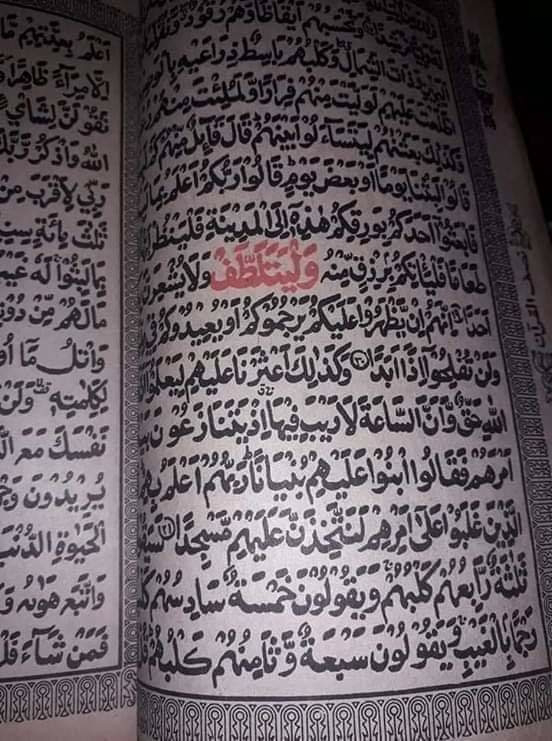 وَتَحْسَبُهُمْ اَيْقَاظًا وَّهُمْ رُقُوْدٌ
الْيَمِيْنِ وَذَاتَ الشِّمَالِ وَكَلْبُهُمْ بَاسِطٌ ذِرَاعَيْهِ
اطَّلَعْتَ عَلَيْهِمْ لَوَلَّيْتَ مِنْهُمْ فِرَارًا وَّلَمُلِئْتَ مِنْهُمْ
وَكَذٰلِكَ بَعَثْنٰهُمْ لِيَتَسَآءَلُوْا بَيْنَهُمْ قَالَ قَآئِلٌ مِّنْهُمْ
قَالُوْا لَبِثْنَا يَوْمًا اَوْ بَعْضَ يَوْمٍ قَالُوْا رَبُّكُمْ اَعْلَمُ بِمَا
فَابْعَثُوْٓا اَحَدَكُمْ بِوَرِقِكُمْ هٰذِهٖٓ اِلَى الْمَدِيْنَةِ فَلْيَنْظُرْ
طَعَامًا فَلْيَاْتِكُمْ بِرِزْقٍ مِّنْهُ وَلْيَتَلَطَّفْ وَلَا يُشْعِرَنَّ
اَحَدًا ۝۱۹ اِنَّهُمْ اِنْ يَّظْهَرُوْا عَلَيْكُمْ يَرْجُمُوْكُمْ اَوْ يُعِيْدُوْكُمْ فِيْ
وَلَنْ تُفْلِحُوْٓا اِذًا اَبَدًا ۝۲۰ وَكَذٰلِكَ اَعْثَرْنَا عَلَيْهِمْ لِيَعْلَمُوْٓا
اللّٰهِ حَقٌّ وَّاَنَّ السَّاعَةَ لَا رَيْبَ فِيْهَا اِذْ يَتَنَازَعُوْنَ
اَمْرَهُمْ فَقَالُوا ابْنُوْا عَلَيْهِمْ بُنْيَانًا رَبُّهُمْ اَعْلَمُ بِهِمْ
الَّذِيْنَ غَلَبُوْا عَلٰٓى اَمْرِهِمْ لَنَتَّخِذَنَّ عَلَيْهِمْ مَّسْجِدًا ۝۲۱
ثَلٰثَةٌ رَّابِعُهُمْ كَلْبُهُمْ وَيَقُوْلُوْنَ خَمْسَةٌ سَادِسُهُمْ
رَجْمًا بِالْغَيْبِ وَيَقُوْلُوْنَ سَبْعَةٌ وَّثَامِنُهُمْ كَلْبُهُمْ
اَعْلَمُ بِعِدَّتِهِمْ
اِلَّا مِرَآءً ظَاهِرًا
تَقُوْلَنَّ لِشَايْءٍ
اللّٰهُ وَاذْكُرْ رَّبَّكَ
رَبِّيْ لِاَقْرَبَ مِنْ
ثَلٰثَ مِائَةٍ
بِمَا لَبِثُوْا لَهٗ غَيْبُ
مَا لَهُمْ مِّنْ دُوْنِهٖ
وَاتْلُ مَآ
لِكَلِمٰتِهٖ وَلَنْ
نَفْسَكَ مَعَ
يُرِيْدُوْنَ
الْحَيٰوةِ الدُّنْيَا
وَاتَّبَعَ هَوٰىهُ
فَمَنْ شَآءَ